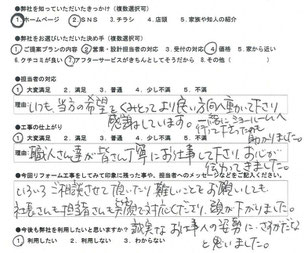 ●弊社を知っていただいたきっかけ（複数選択可）
1 ホームページ 2 SNS 3 チラシ 4 店頭 5 家族や知人の紹介
●弊社をお選びいただいた決め手（複数選択可）
1 ご提案プランの内容 2 営業・設計担当者の対応 3 受付の対応 4 価格 5 家から近い
6 クチコミが良い 7 アフターサービスがきちんとしてそうだから 8 その他（ ）
●担当者の対応
1 大変満足 2 満足 3 普通 4 少し不満 5 不満
理由：いつも、当方の希望をくみとってより良い方向へ動いて下さり
感謝しています。一緒にショールームへ
行って下さったのも
助かりました。
●工事の仕上がり
1 大変満足 2 満足 3 普通 4 少し不満 5 不満
理由：職人さん達が皆さん丁寧にお仕事して下さり、お心が
伝わってきました。
●今回リフォーム工事をしてみて印象に残った事や、担当者へのメッセージなどをご記入ください。
いろいろご相談させて頂いたり難しいこともお願いしても
社長さんも担当さんも笑顔で対応くださり、頭が下がりました。
誠実なお仕事の姿勢に、さすがだな
と思いました。
●今後も弊社を利用したいと思いますか？
1 利用したい 2 利用しない 3 わからない